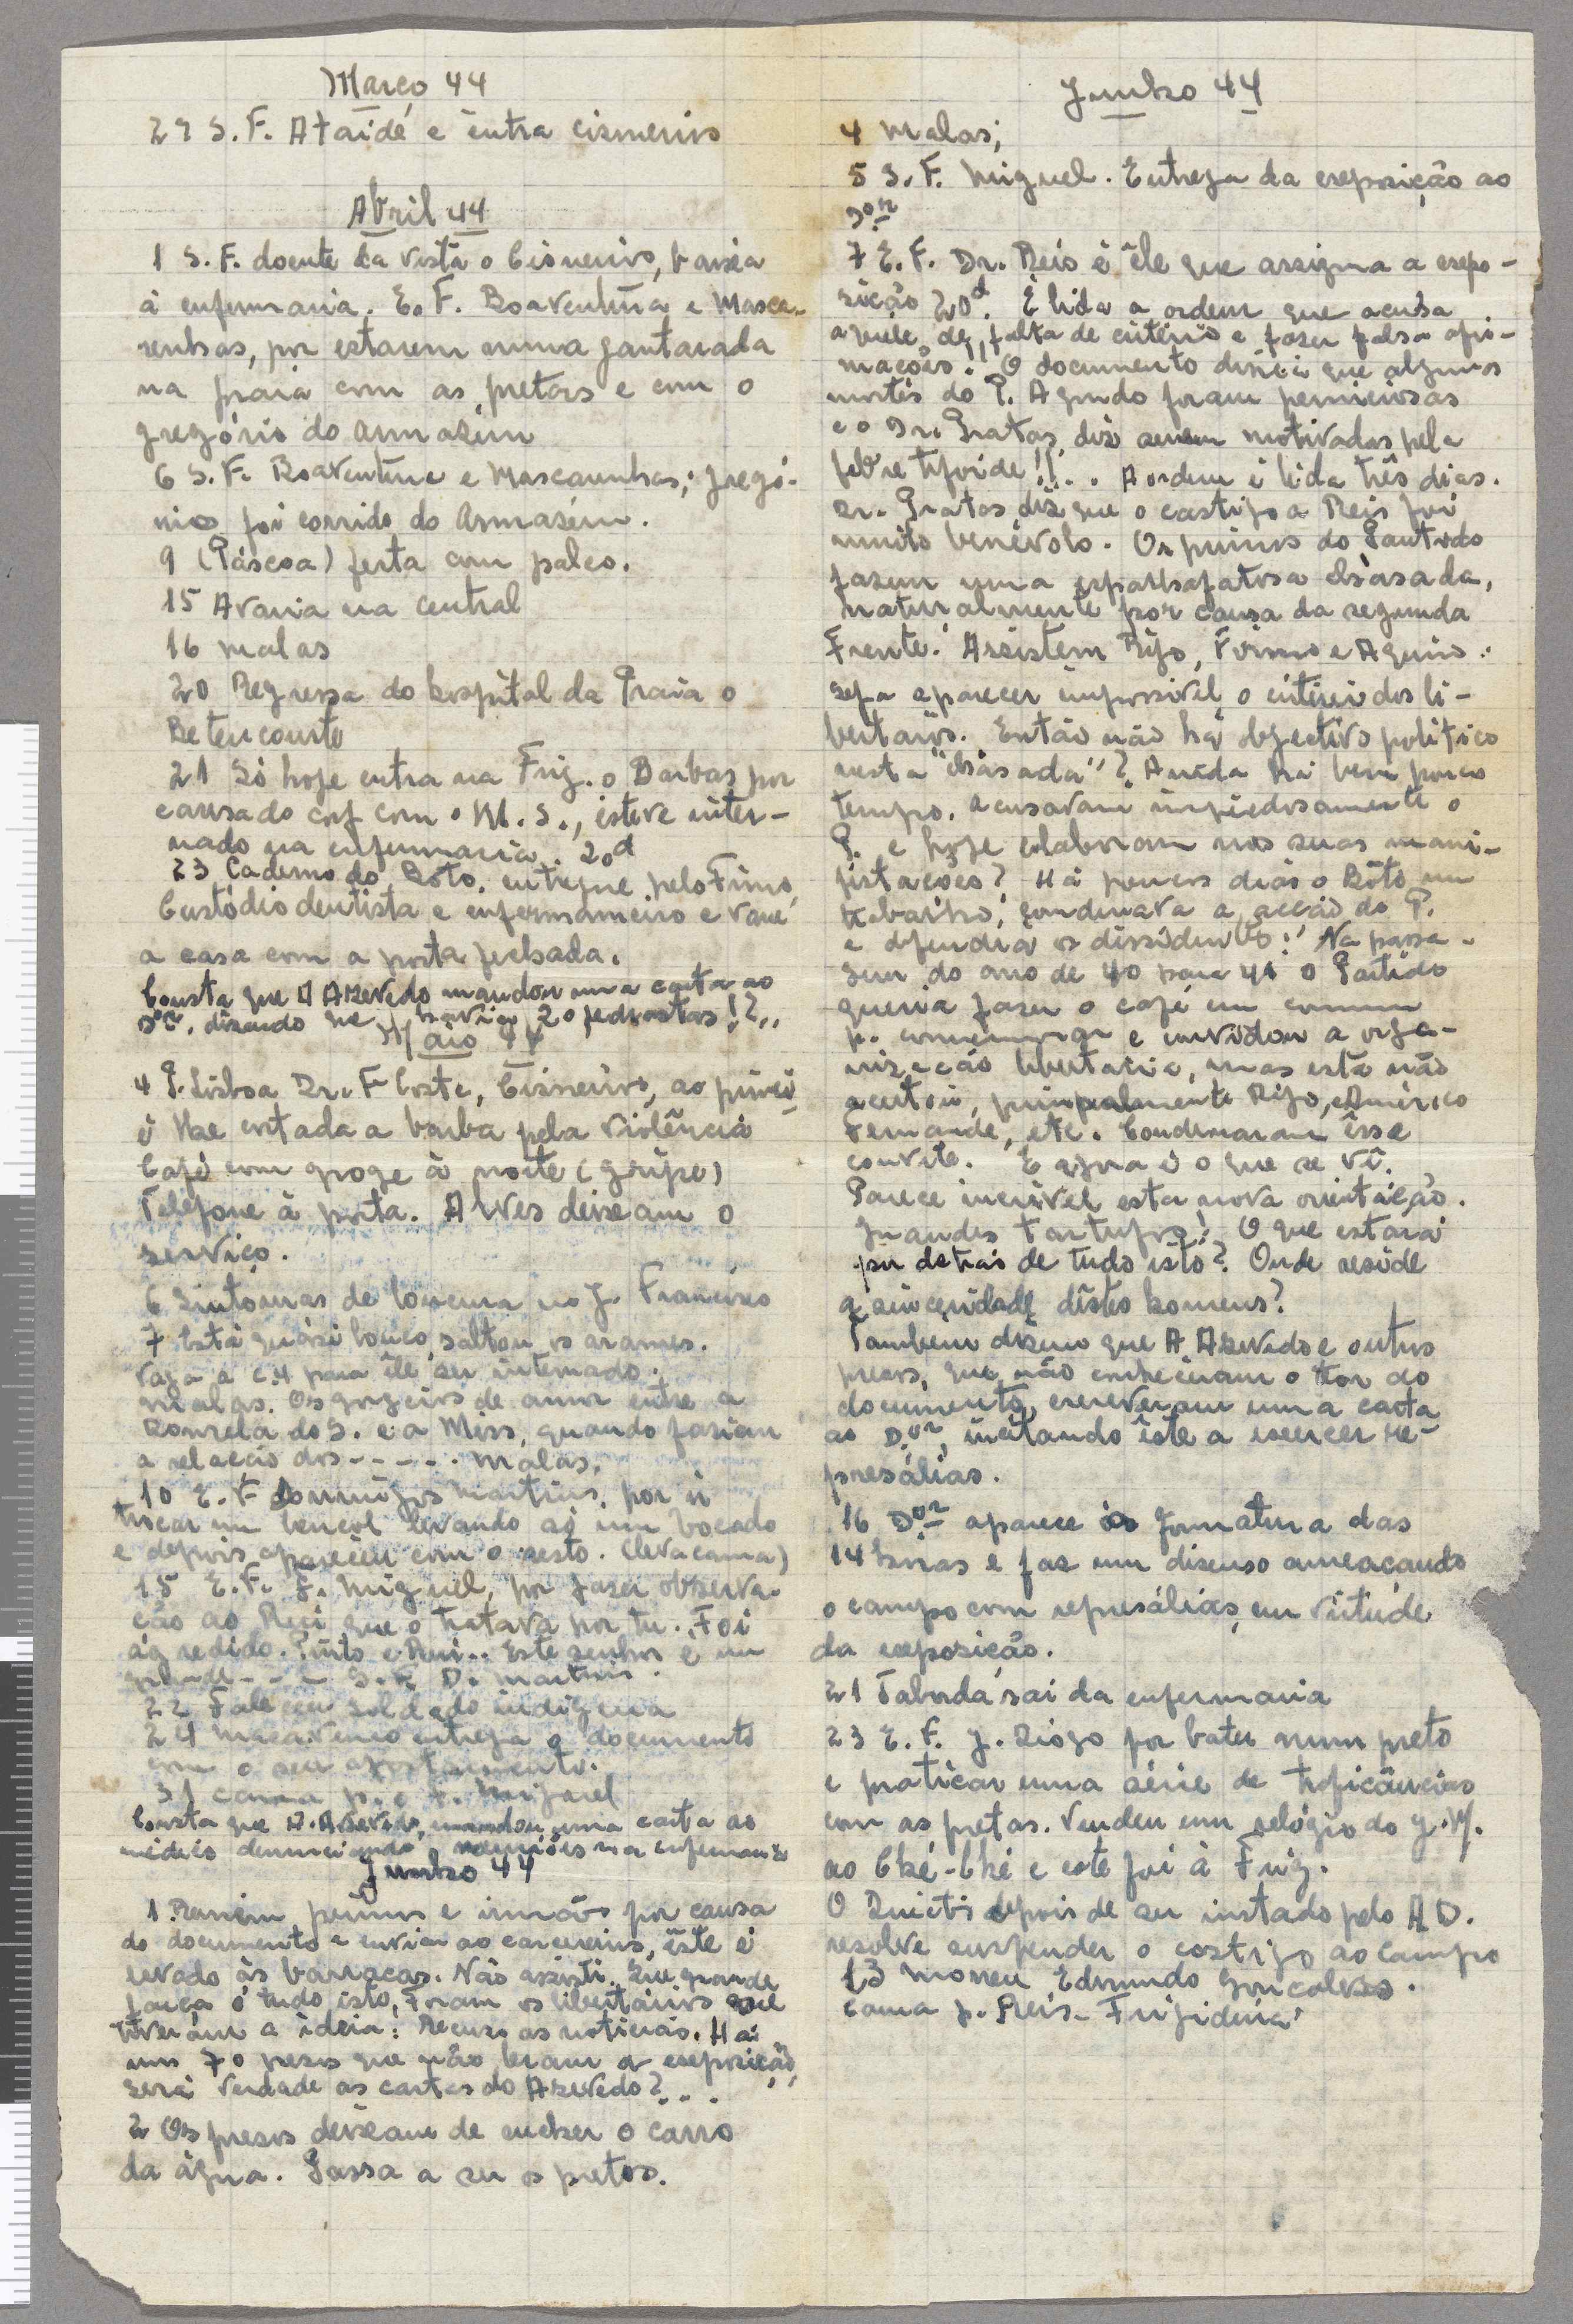 Março 44
29 S. F. Ataíde e entra Cisneiros
Abril 44
1 S. F. doente da vista o Cisneiros, baixa
á enfermaria. E. F. Boaventura e Masca-
renhas, por estarem numa jantarada
na praia com as pretas e com o
gregório do armazém
6 S. F. Boaventura e Mascarenhas; gregó-
rio foi corrido do armazém.
9 (Páscoa) festa com palco.
15 Avaria na central
16 malas
20 Regressa do hospital da Praia o
Betencourte
21 Só hoje entra na Frig. o Barbas por
causa do conf com o M. S., esteve inter-
nado na enfermaria. 20d
23 Caderno do Bôto, entregue pelo Firmo
Custódio dentista e enfermameiro e vai
a casa com a porta fechada.
Consta que o Azevedo mandou uma carta ao
Dor, dizendo que havia 20 pedrastas!?,,
Maio 44
4 P. Lisboa Dr. F Costa, Cisneiros, ao
é lhe cortada a barba pela violência
Café com groge à noite (gripe)
Telefone à porta. Alves deixam o
serviço.
6 Sintomas de loucura no J. Francisco
7 Está quási louco, saltou os arames.
vaga a C.4 para êle ser internado.
malas. Os gorgeios de amor entre a
Ronzela do S. e a Miss, quando faziam
a relação dos - - - - - . malas.
10 E. F Domingos Martins, por ir
trocar um lençol levando só um bocado
e depois apareceu com o resto. (leva cama)
15 E. F. F. Miguel, por fazer observa-
ção ao Rui que o tratava por tu. Foi
agredido. Pinto e Rui.. Este senhor é um
grande - - - - S. F. D. Martins.
22 Faleceu soldado indígena
24 entrega o documento
com o seu
31 cama p. o F. Miguel
Consta que A. Azevedo, mandou uma carta ao
médico denunciando reuniões na enfermaria
Junho 44
1 Reunem primos e irmãos por causa
do documento a enviar ao carcereiro, êste é
levado às barracas. Não assisti. Que grande
farça é tudo isto, foram os libertários que
tiveram a ideia: Recuso as noticias. Há
uns 70 presos que não leram a exposição,
será verdade as cartas do Azevedo?...
2 Os presos deixam de encher o carro
da água. Passa a ser os pretos.
Junho 44
4 malas;
5 S. F. Miguel. Entrega da exposição ao
Dor
7 E. F. Dr. Reis é êle que assigna a expo-
sição 20d. É lida a ordem que acusa
aquele de, falta de critério e fazer falsa afir-
mações!, O documento dizia que algumas
mortes do P. Agudo foram perniciosas
e o Dr. Pratas, diz serem motivadas pela
febre tifoide!!... A ordem é lida três dias.
Dr. Pratas diz que o castigo a Reis foi
muito benévolo. Os primos do Pautado
fazem uma espalhafatosa chàsada,
naturalmente por causa da segunda
Frente! Assistem Rijo, Firmo e Aquino:
seja aparecer impossivel, o critério dos li-
bertários. Então não há objectivo politico
nesta "chàsada"? Ainda há bem pouco
tempo, acusavam impiedosamente o
P. e hoje colaboram nas suas mani-
fistações? Há poucos dias o Bôto um
trabalho, condenava a acção do P.
e defendia os dissidentes!! Na passa-
gem do ano de 40 para 41 o Partido
queria fazer o café em comum
p. comemorar e convidou a orga-
nização libertaria, mas esta não
aceitou, principalmente Rijo, Américo
Fernande, etc. Condenaram êsse
convite. E agora é o que se vê.
Parece incrivel esta nova orientação.
Grandes tartufos! O que estará
por detrás de tudo isto? Onde reside
a sinceridade dêstes homens?
Tambem dizem que A. Azevedo e outros
presos, que não conheceram o tior do
documento, escreveram uma carta
ao D.or, incitando êste a exercer re-
presálias.
16 Dor aparece às formatura das
14 horas e faz um discurso ameaçando
o campo com represálias, em virtude
da exposição.
21 Taborda sai da enfermaria
23 E. F. J. Diogo por bater num preto
e praticar uma série de traficâncias
com as pretas. Vendeu um relógio do J. M.
ao Ché-Ché e este foi à Frig.
O Quieto depois de ser instado pelo A D.
resolve suspender o castigo ao Campo
13 Moreu Edmundo Gonçalves.
cama p. Reis - Frigideira